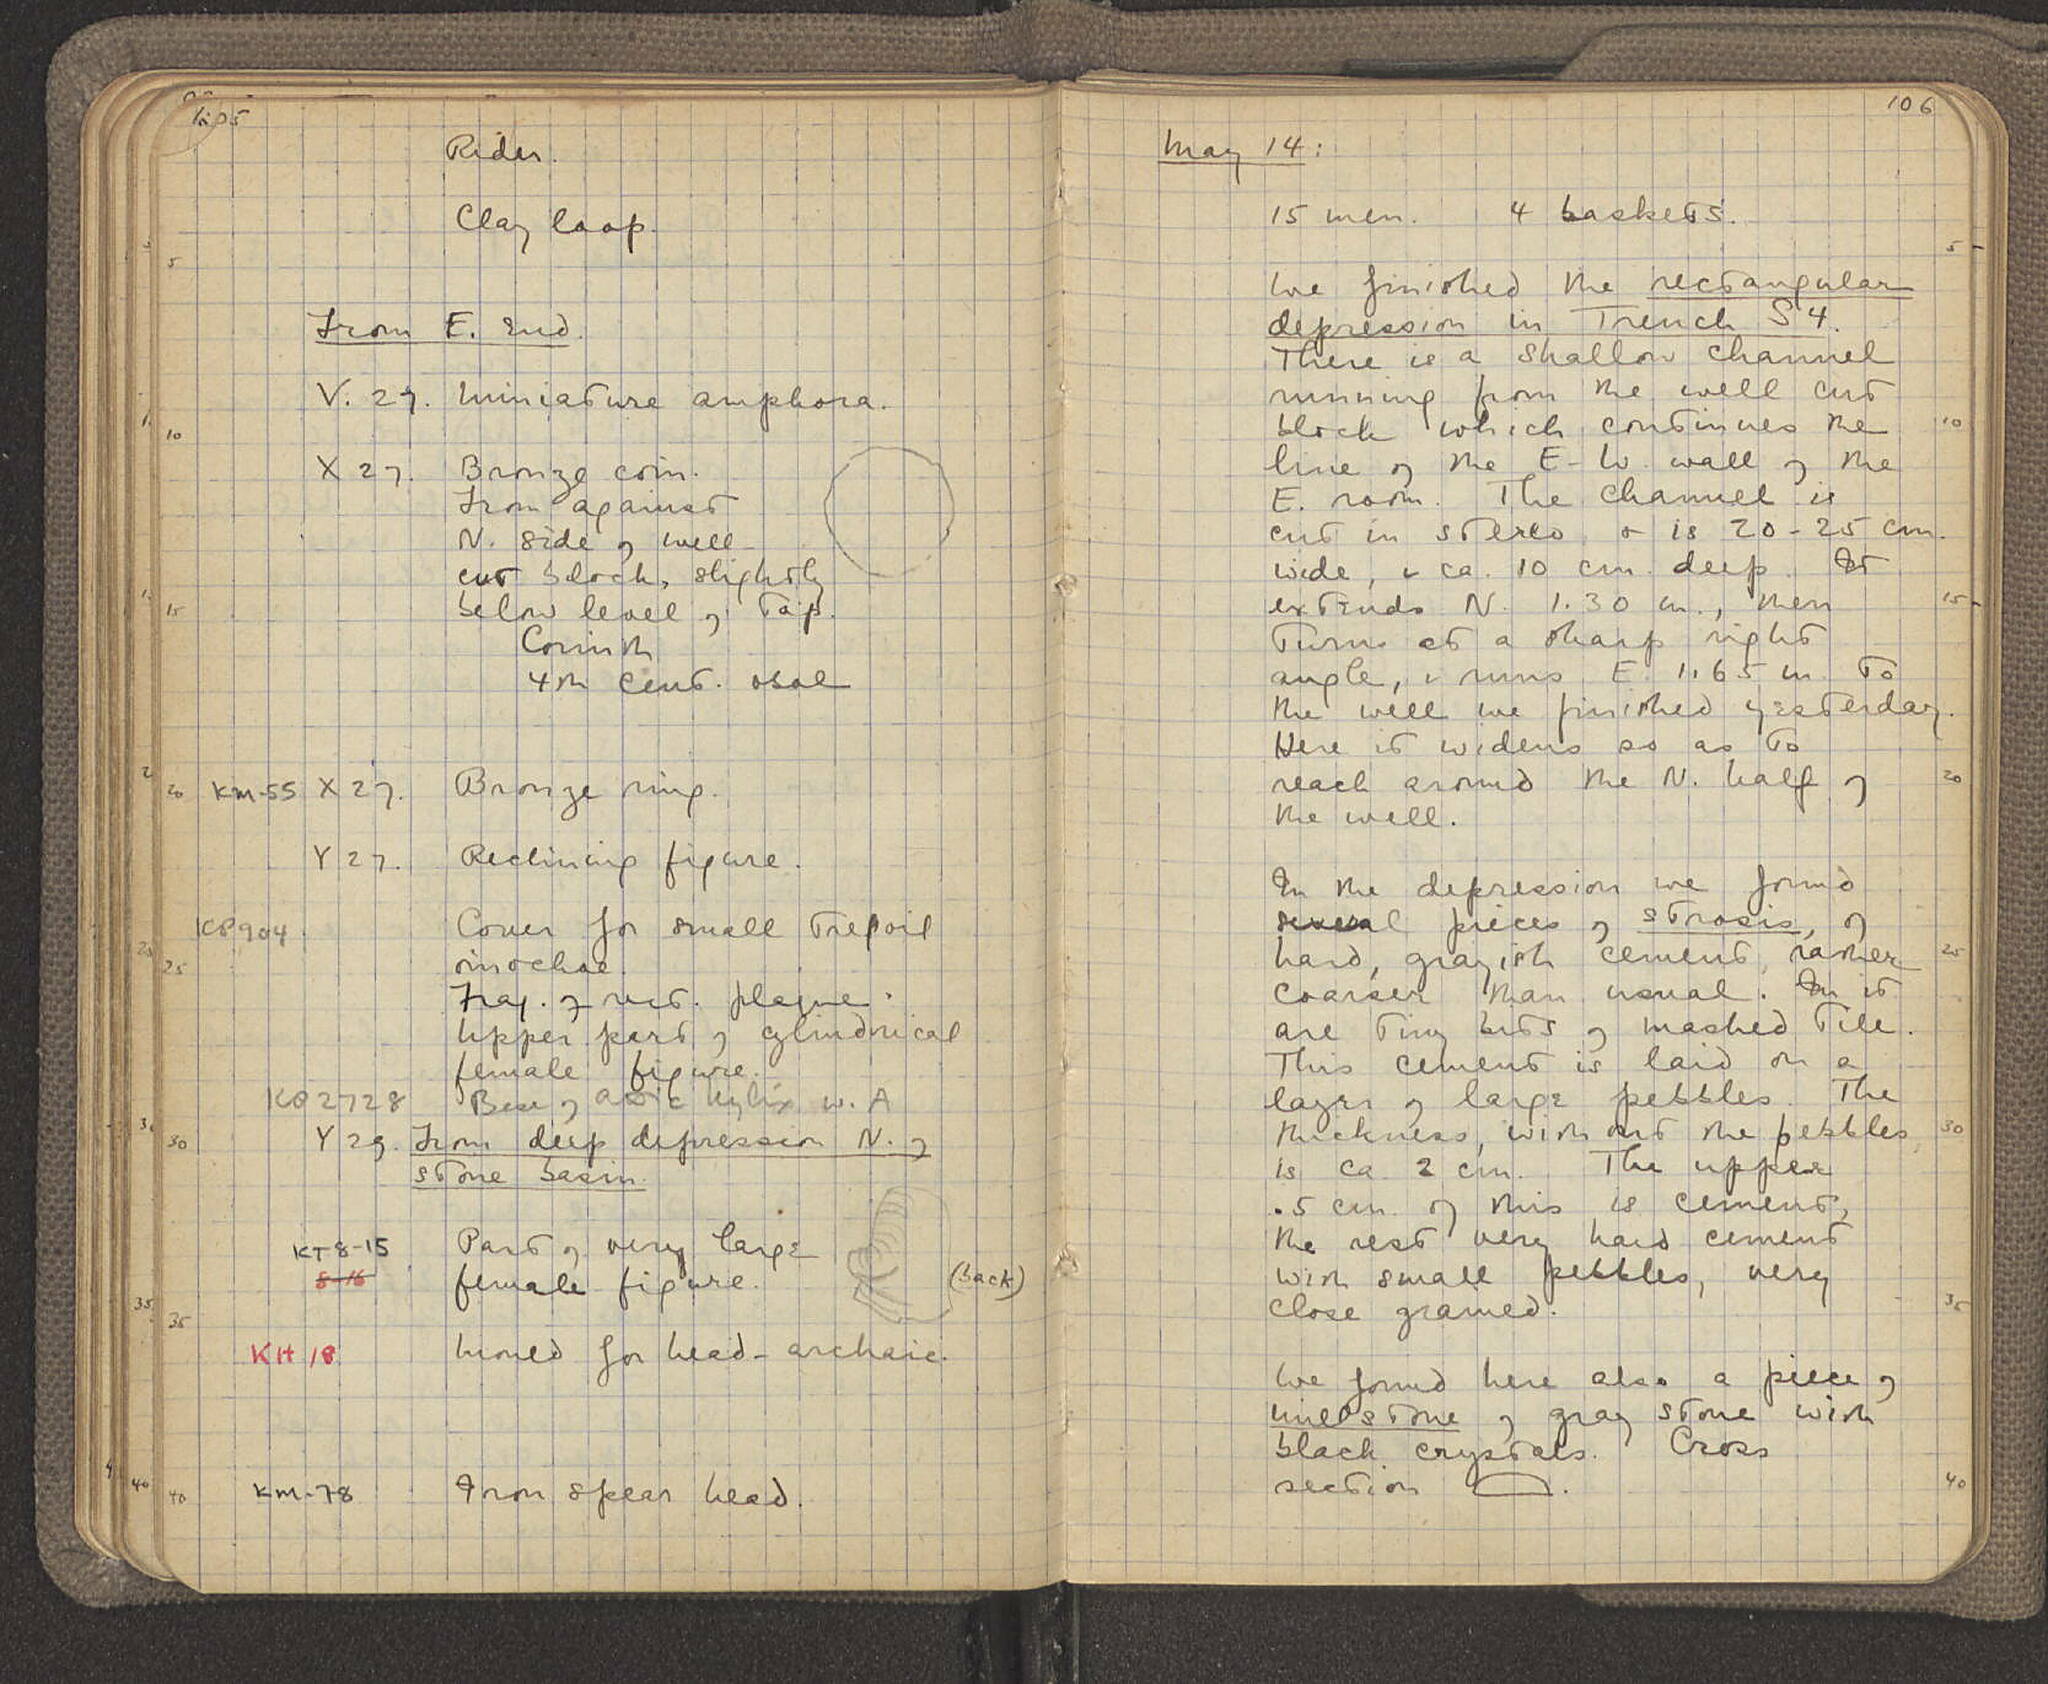 105
Rider.
Clay loop.
5
From E. End.
V. 27. Miniature amphora.
10
X 27. Bronze coin.
From against
N. side of well
cut block, slightly
15 below level of top.
Corinth
4th cent. obol
20 KM-55 X 27. Bronze ring.
Y 27. Reclining figure.
KP904 Cover for small trefoil
25 oinochoe.
Frag. of rect. plaque.
Upper part of cylindrical
female figure.
KP2728 Base of attic kylix w. A
30 Y 29. From deep depression N. of
stone basin.
KT8-15 Part of very large
8-16 female figure. (back)
35
KH 18 Mould for head - archaic.
40 KM-78 Iron spear head.
106
May 14:
15 men. 4 baskets.
5
We finished the rectangular
depression in Trench S4.
There is a shallow channel
running from the well cut
block which continues the 10
line of the E-W. wall of the
E. room. The channel is
cut in stereo & is 20-25 cm.
wide, & ca. 10 cm. deep. It
extends N. 1.30 m., then 15
turns at a sharp right
angle, & runs E. 1.65 m. to
the well we finished yesterday.
Here it widens so as to
reach around the N. half of 20
the well.
In the depression we found
several pieces of strosis, of
hard, grayish cement, rather 25
coarser than usual. In it
are tiny bits of mashed tile.
This cement is laid on a
layer of large pebbles. The
thickness, without the pebbles, 30
is ca 2 cm. The upper
.5 cm. of this is cement,
the rest very hard cement
with small pebbles, very
close grained. 35
We found here also a piece of
millstone of gray stone with
black crystals. Cross
section . 40